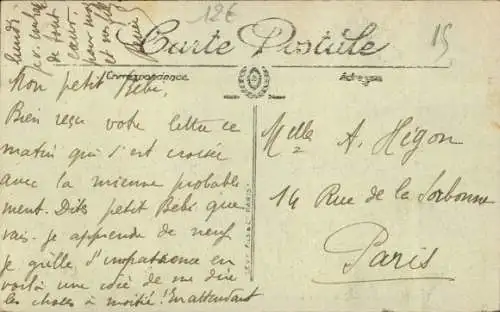 12€
15
Carte Postale
Correspondance
Adresse
Mon petit Bébé,
Bien reçu votre lettre ce
matin qui s'est croisée
avec la mienne probable
ment. Dites petit Bébé que
vais-je apprendre de neuf
je grille d'impatience en
voilà une idée de me dire
les choses à moitié! En attendant
lundi
je v. embrasse
de tout
cœur
pour moi
et
Melle A. Higon
14 Rue de la Sorbonne
Paris